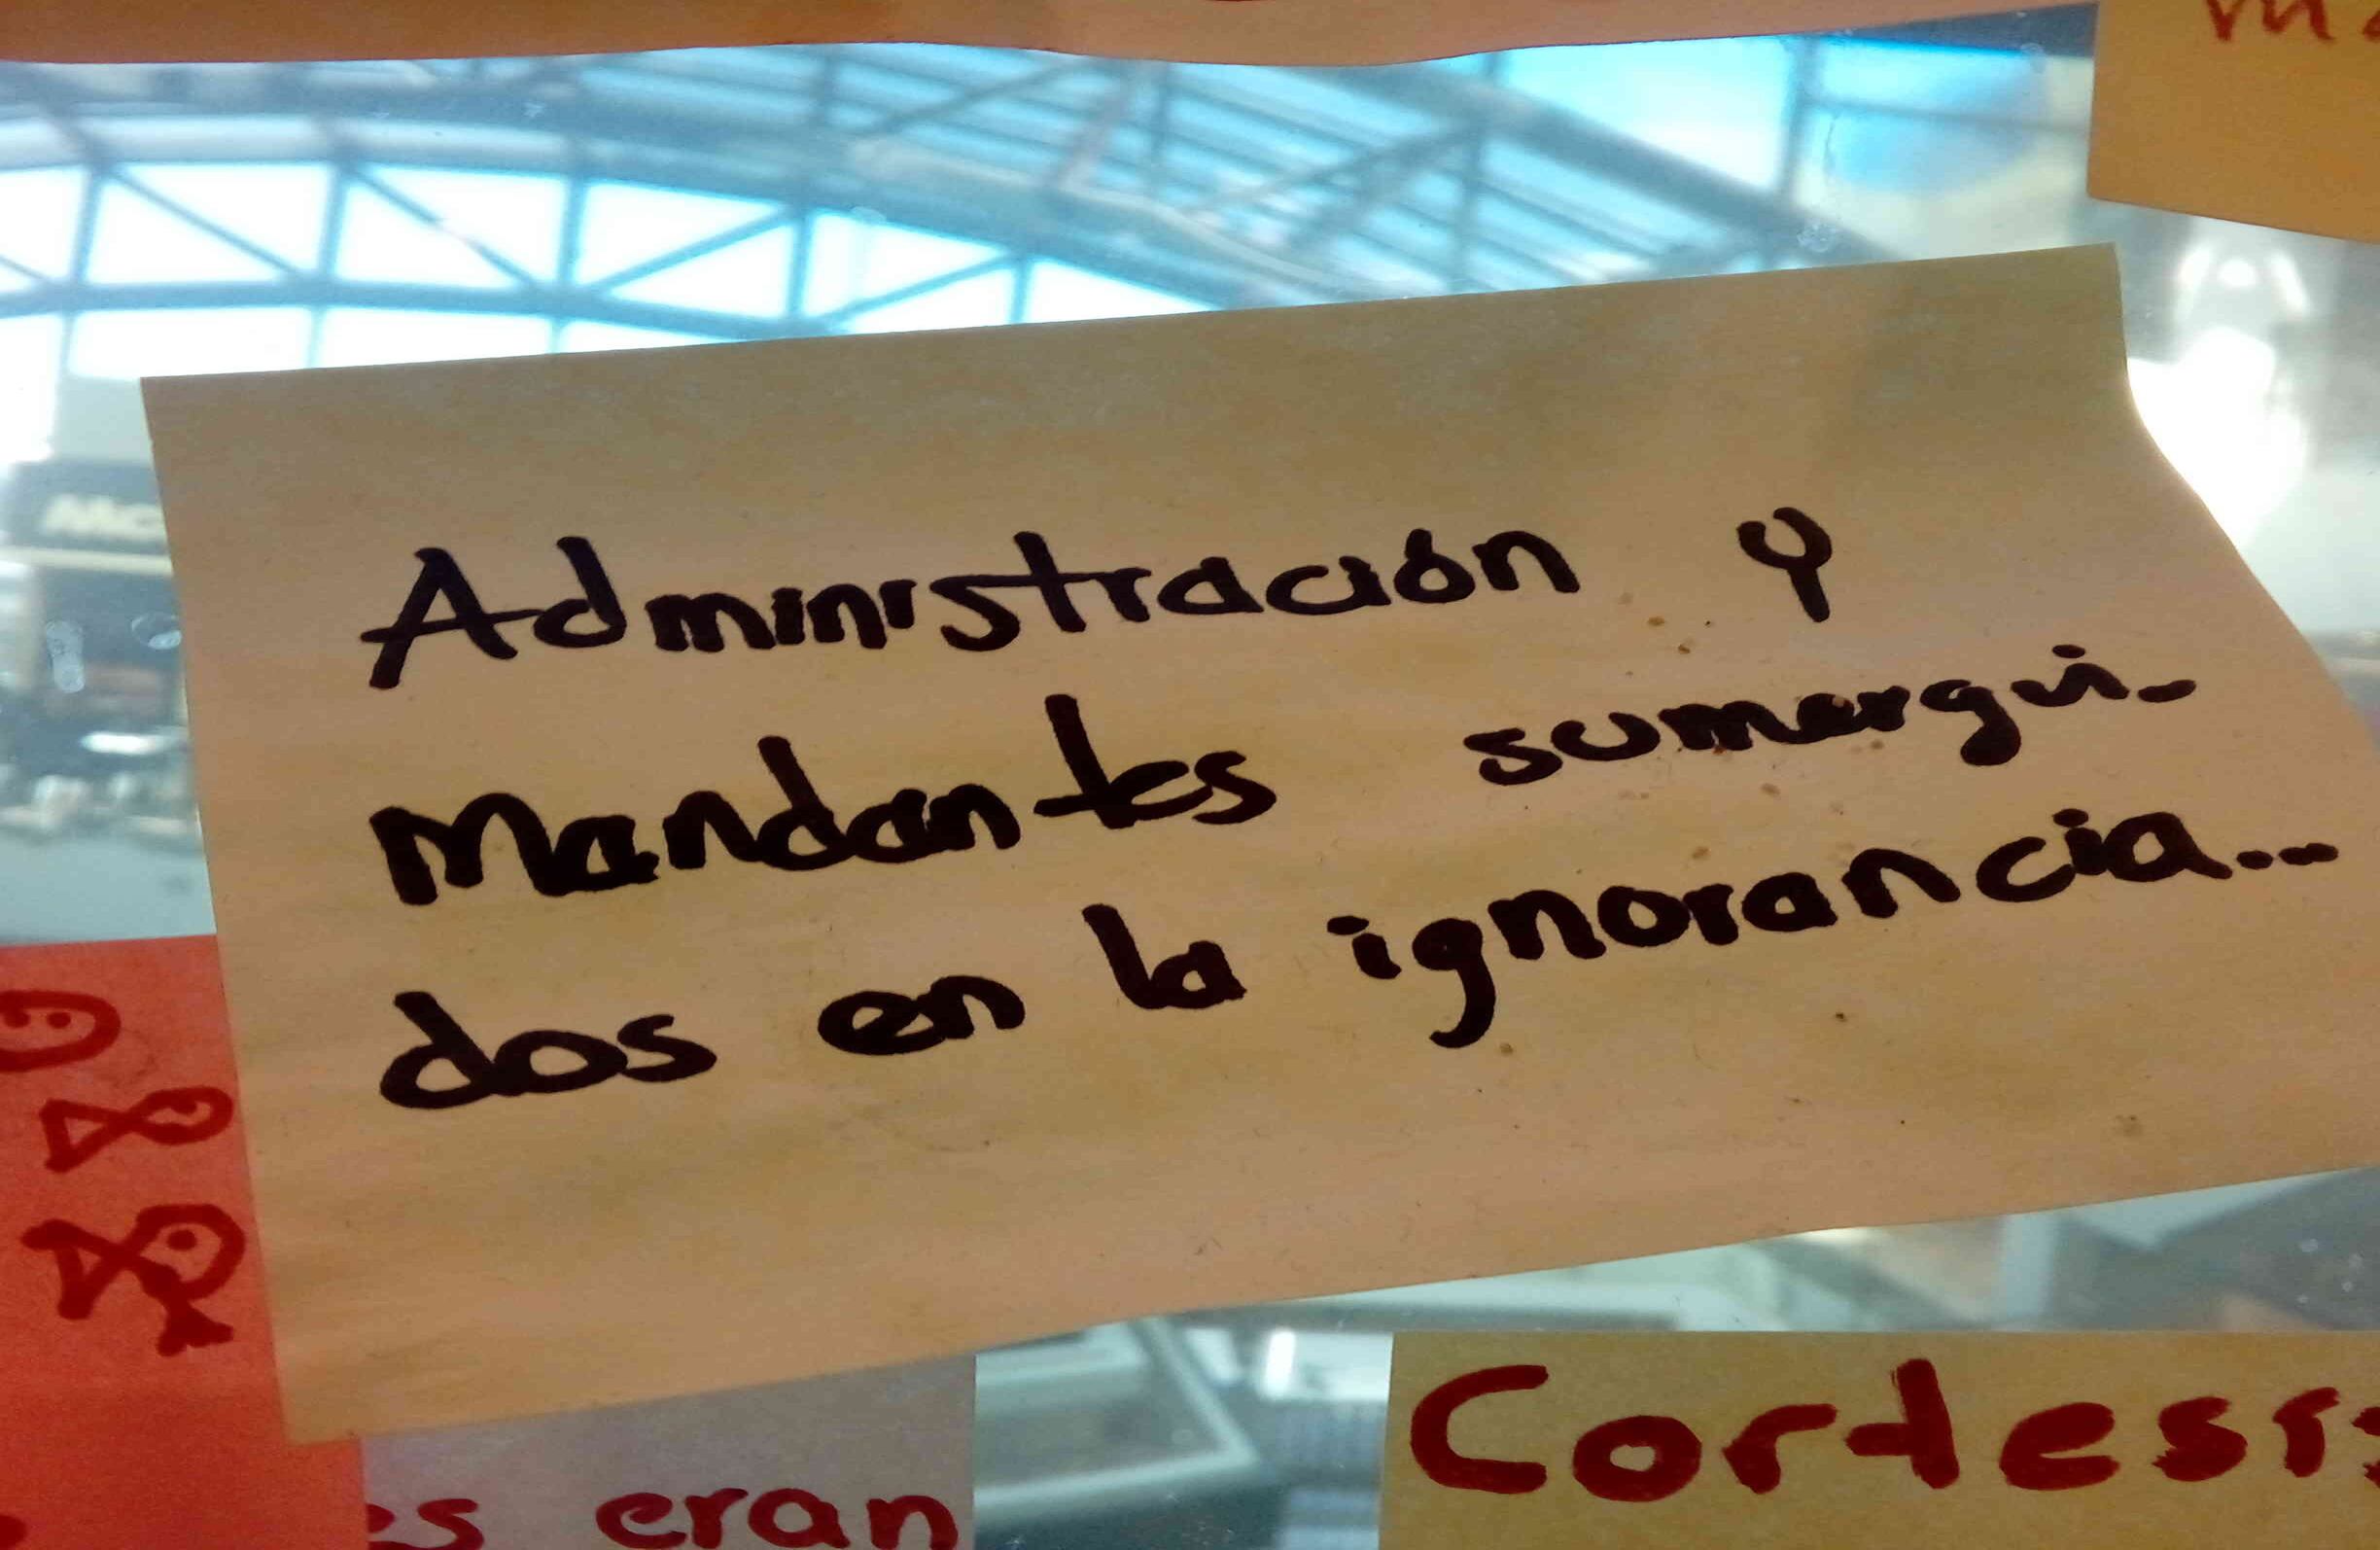 Administración y
Mandantes sumergi-
dos en la ignorancia...
es eran